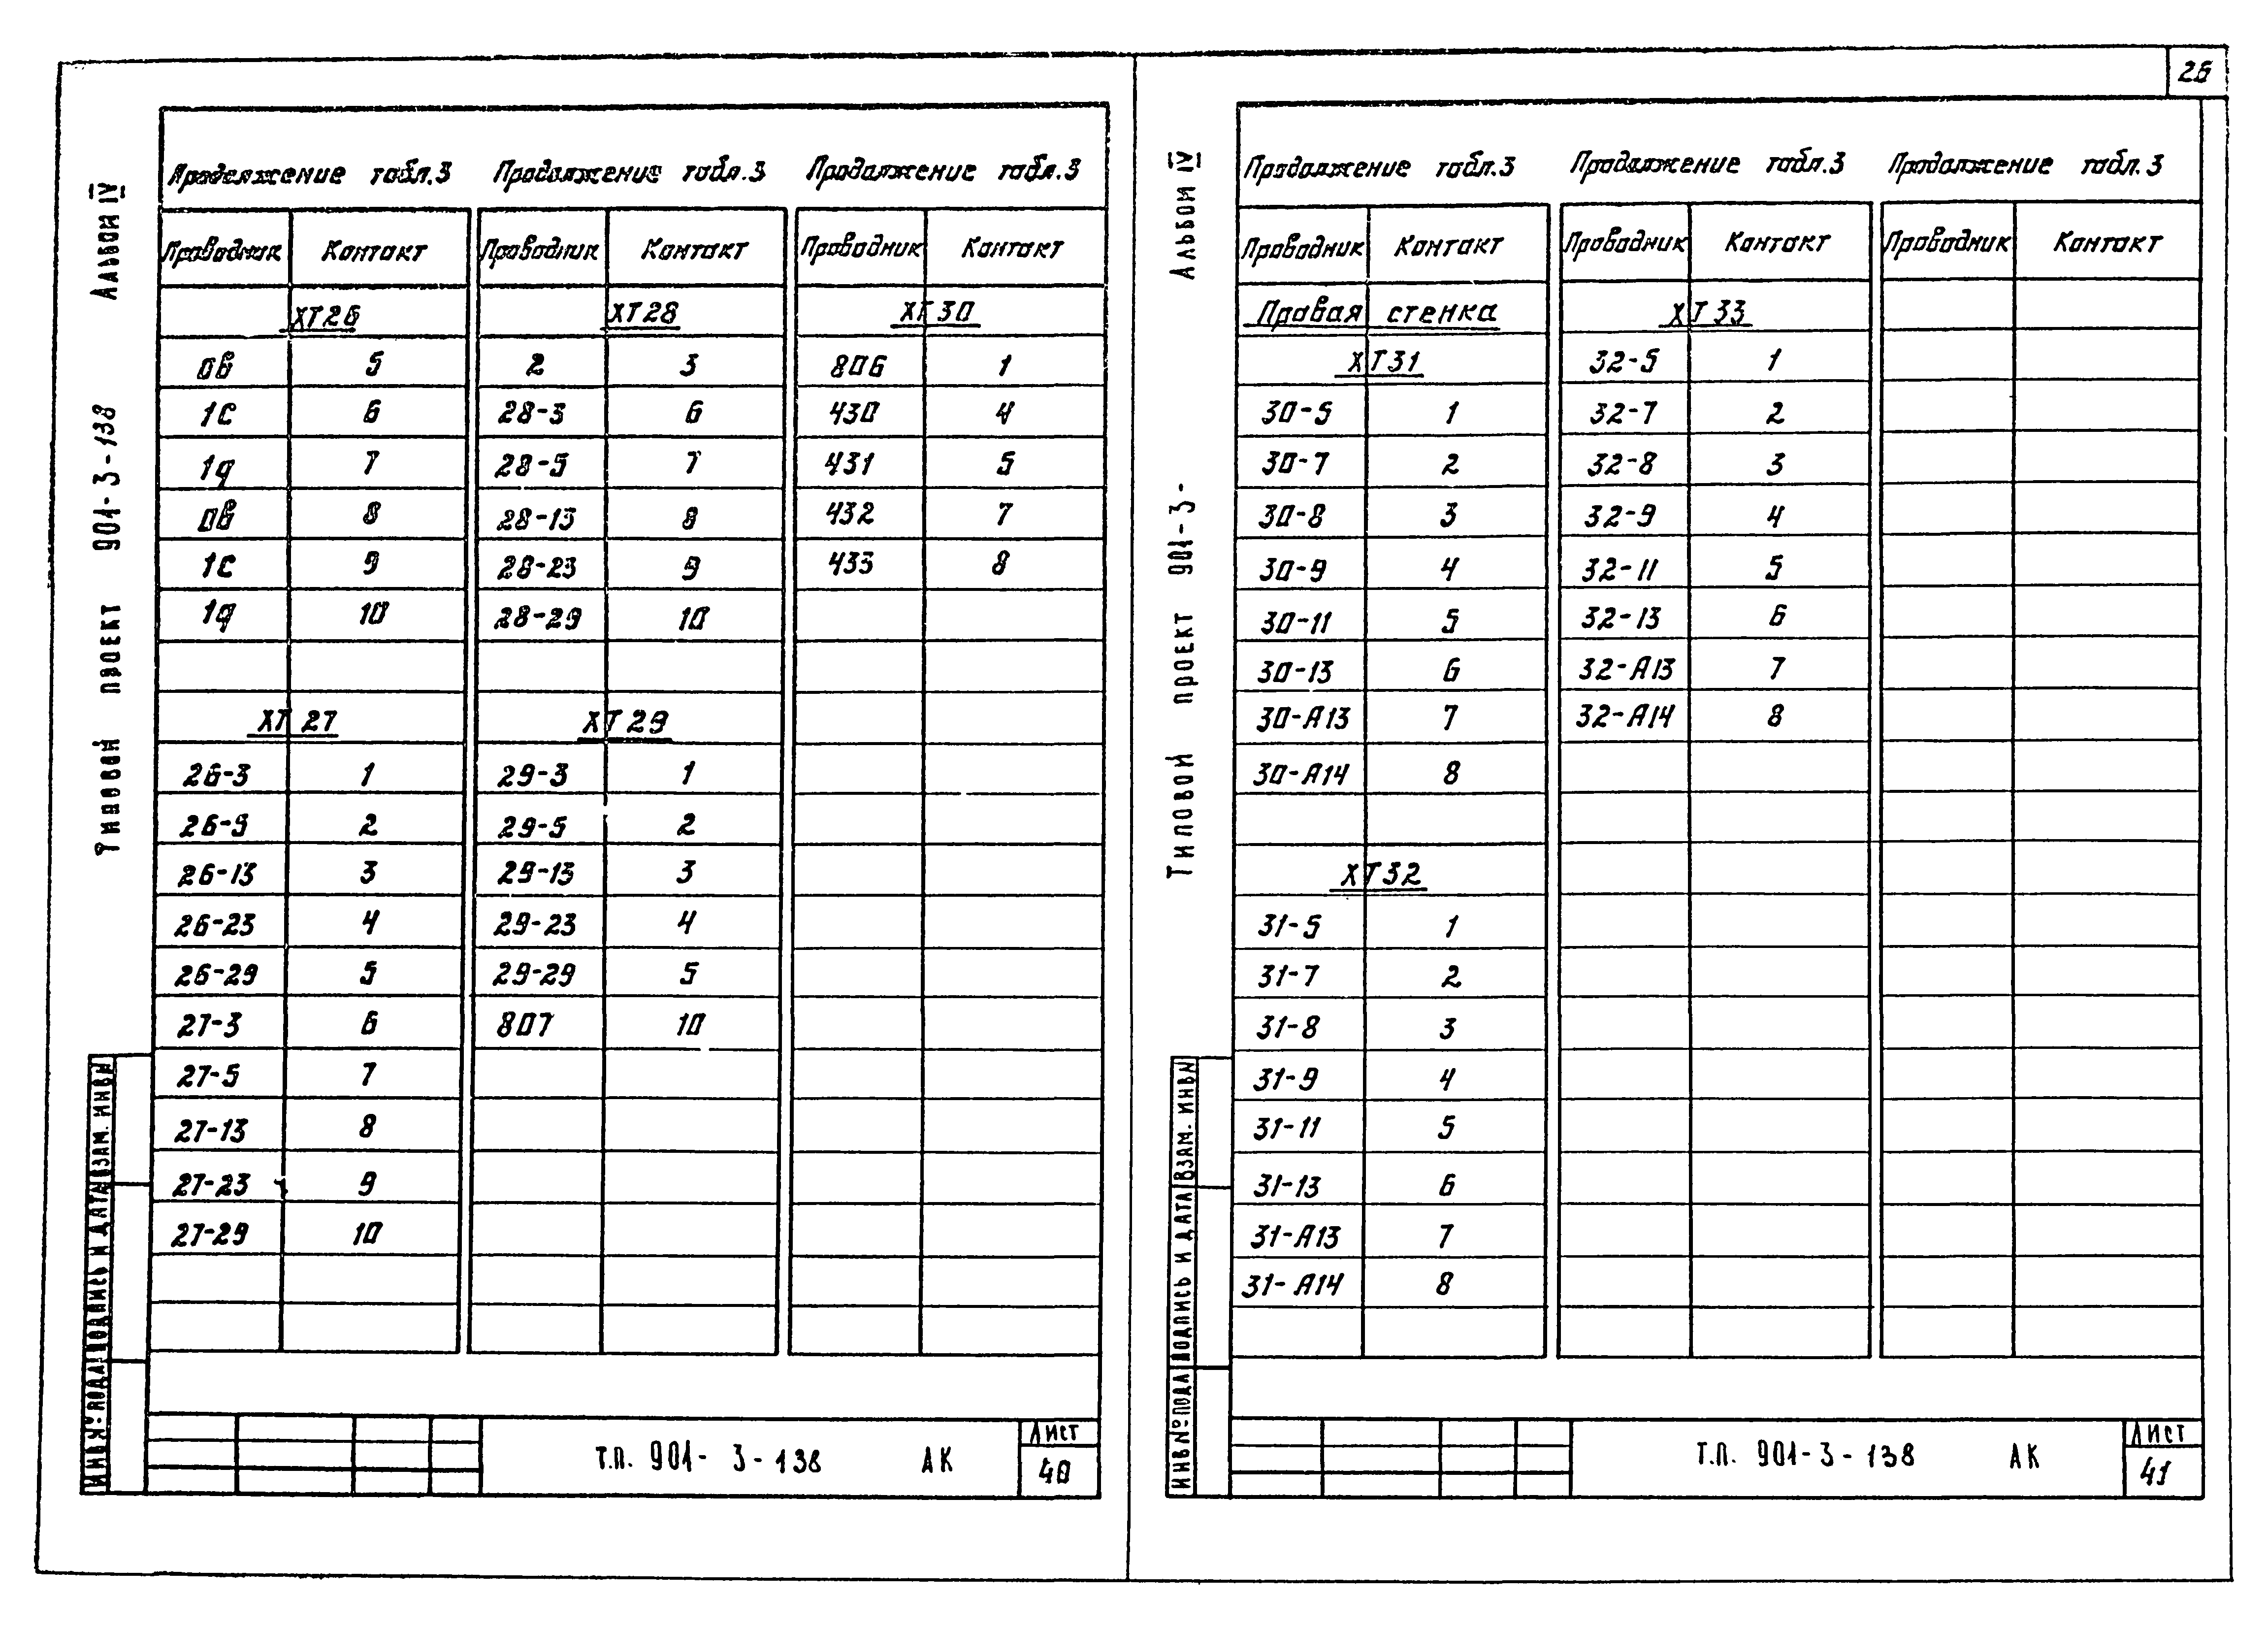 26
Альбом IV
Типовой проект 901-3-138
Продолжение табл.3 Продолжение табл.3 Продолжение табл.3
Проводник Контакт Проводник Контакт Проводник Контакт
XT26 XT28 XT30
0в 5 2 3 806 1
1с 6 28-3 6 430 4
1q 7 28-5 7 431 5
0в 8 28-13 8 432 7
1с 9 28-23 9 433 8
1q 10 28-29 10
XT27 XT29
26-3 1 29-3 1
26-5 2 29-5 2
26-13 3 29-13 3
26-23 4 29-23 4
26-29 5 29-29 5
27-3 6 807 10
27-5 7
27-13 8
27-23 9
27-29 10
ИНВ№ПОДЛ ПОДПИСЬ И ДАТА ВЗАМ. ИНВ№
Т.П. 901-3-138 АК
Лист
40
Альбом IV
Типовой проект 901-3-
Продолжение табл.3 Продолжение табл.3 Продолжение табл.3
Проводник Контакт Проводник Контакт Проводник Контакт
Правая стенка XT33
XT31 32-5 1
30-5 1 32-7 2
30-7 2 32-8 3
30-8 3 32-9 4
30-9 4 32-11 5
30-11 5 32-13 6
30-13 6 32-А13 7
30-А13 7 32-А14 8
30-А14 8
XT32
31-5 1
31-7 2
31-8 3
31-9 4
31-11 5
31-13 6
31-А13 7
31-А14 8
ИНВ№ПОДЛ ПОДПИСЬ И ДАТА ВЗАМ. ИНВ№
Т.П. 901-3-138 АК
Лист
41